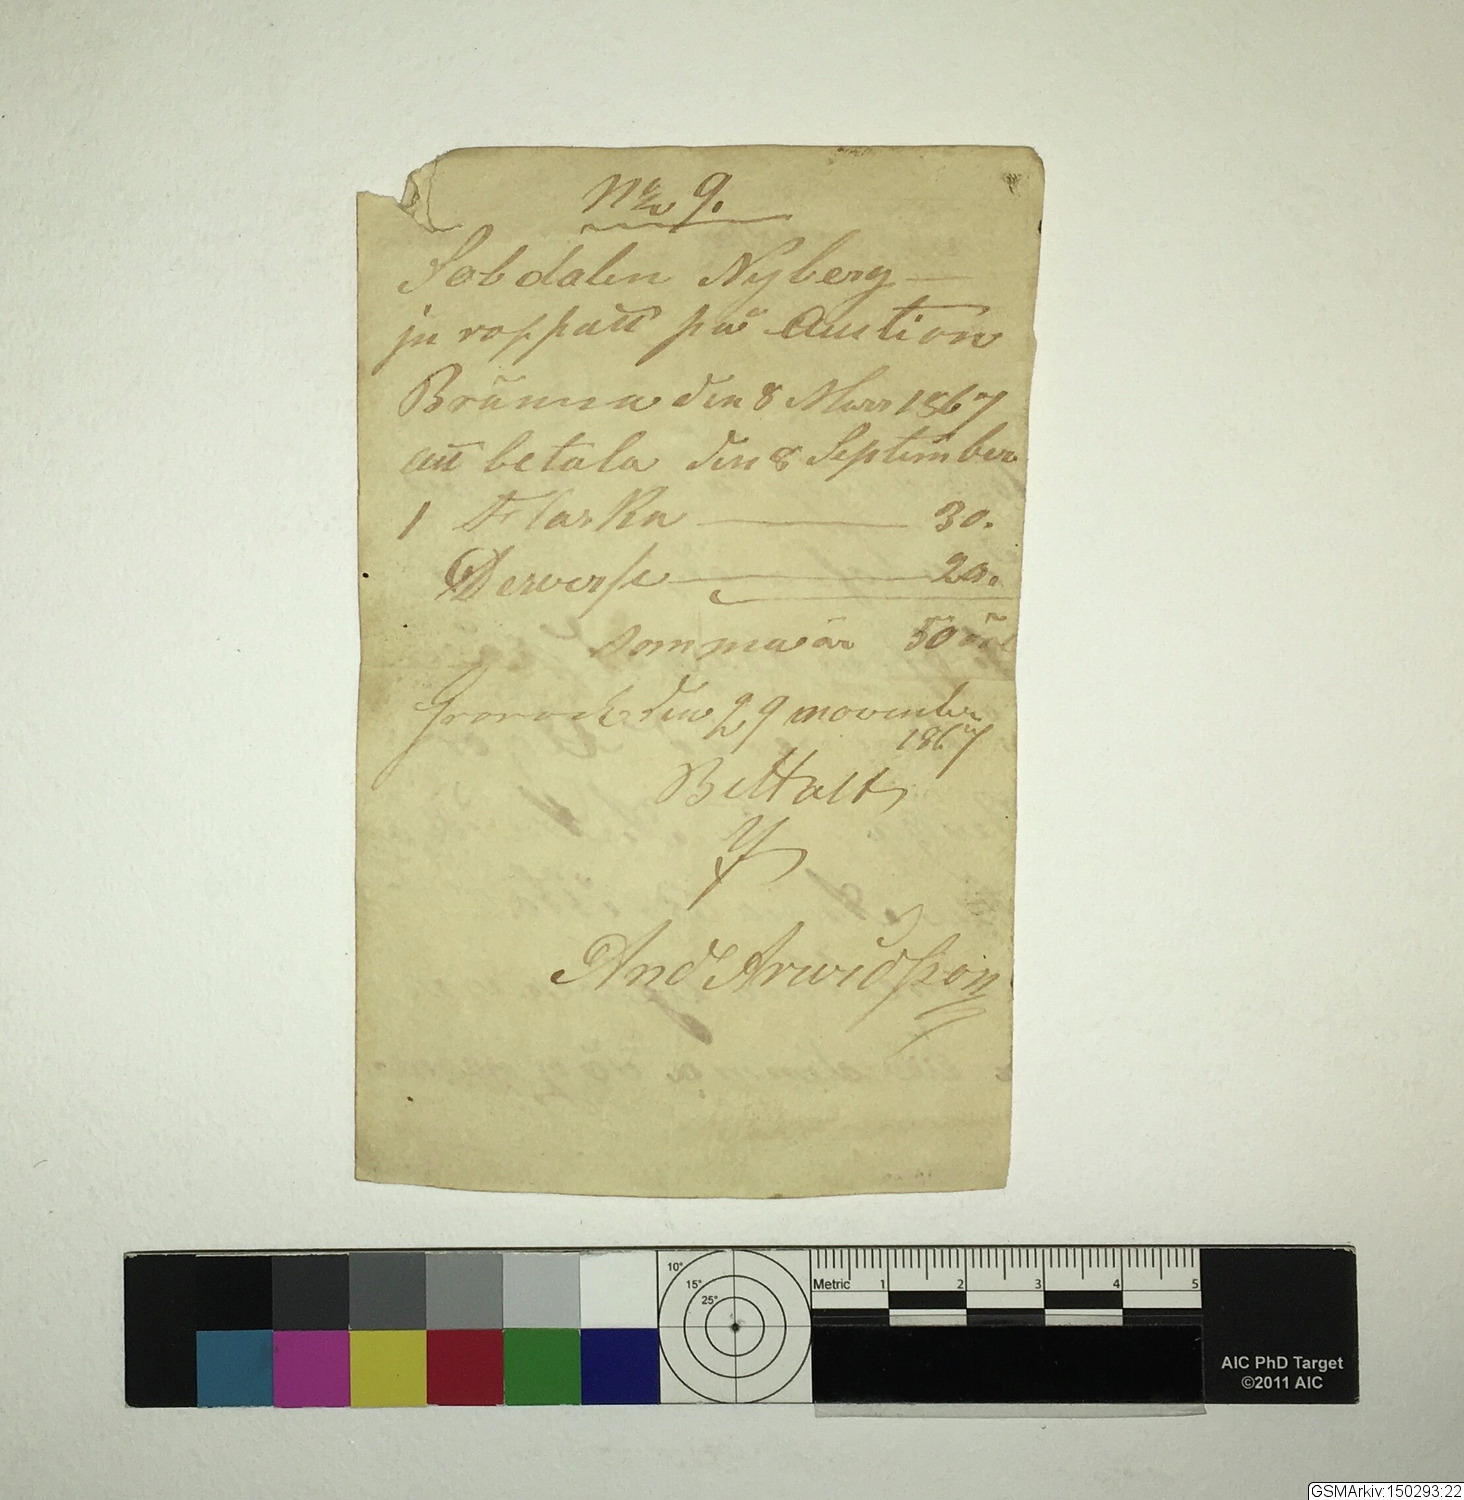 No 9.
Sobdalen Nyberg
in roppatt på Auction
Bränna den 8 Mars 1867
att betala den 8 September
1 Flaska 30.
Derverse 20.
somma är 50 öre
den 29 november
1867
Bettalt
And Arwidsson
10°
15°
25°
Metric 1 2 3 4 5
AIC PhD Target
©2011 AIC
GSMArkiv:150293:22